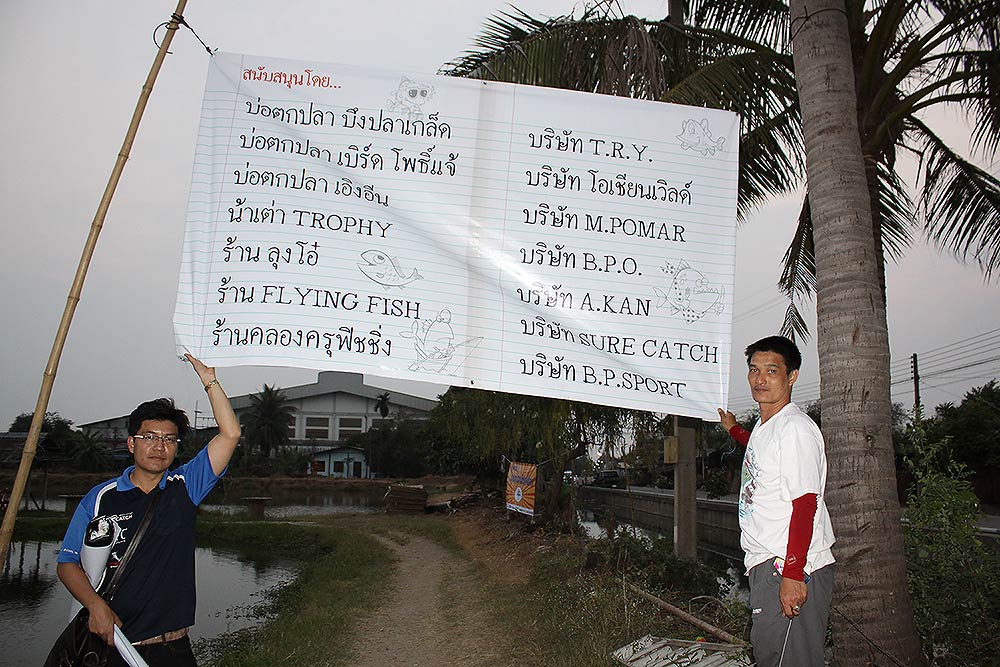 สนับสนุนโดย...
บ่อตกปลา บึงปลาเกล็ด
บ่อตกปลา เบิร์ด โพธิ์แจ้
บ่อตกปลา เอิงอีน
น้าเต่า TROPHY
ร้าน ลุงโอ๋
ร้าน FLYING FISH
ร้านคลองครุฟิชชิ่ง
บริษัท T.R.Y.
บริษัท โอเชียนเวิลด์
บริษัท M.POMAR
บริษัท B.P.O.
บริษัท A.KAN
บริษัท SURE CATCH
บริษัท B.P.SPORT